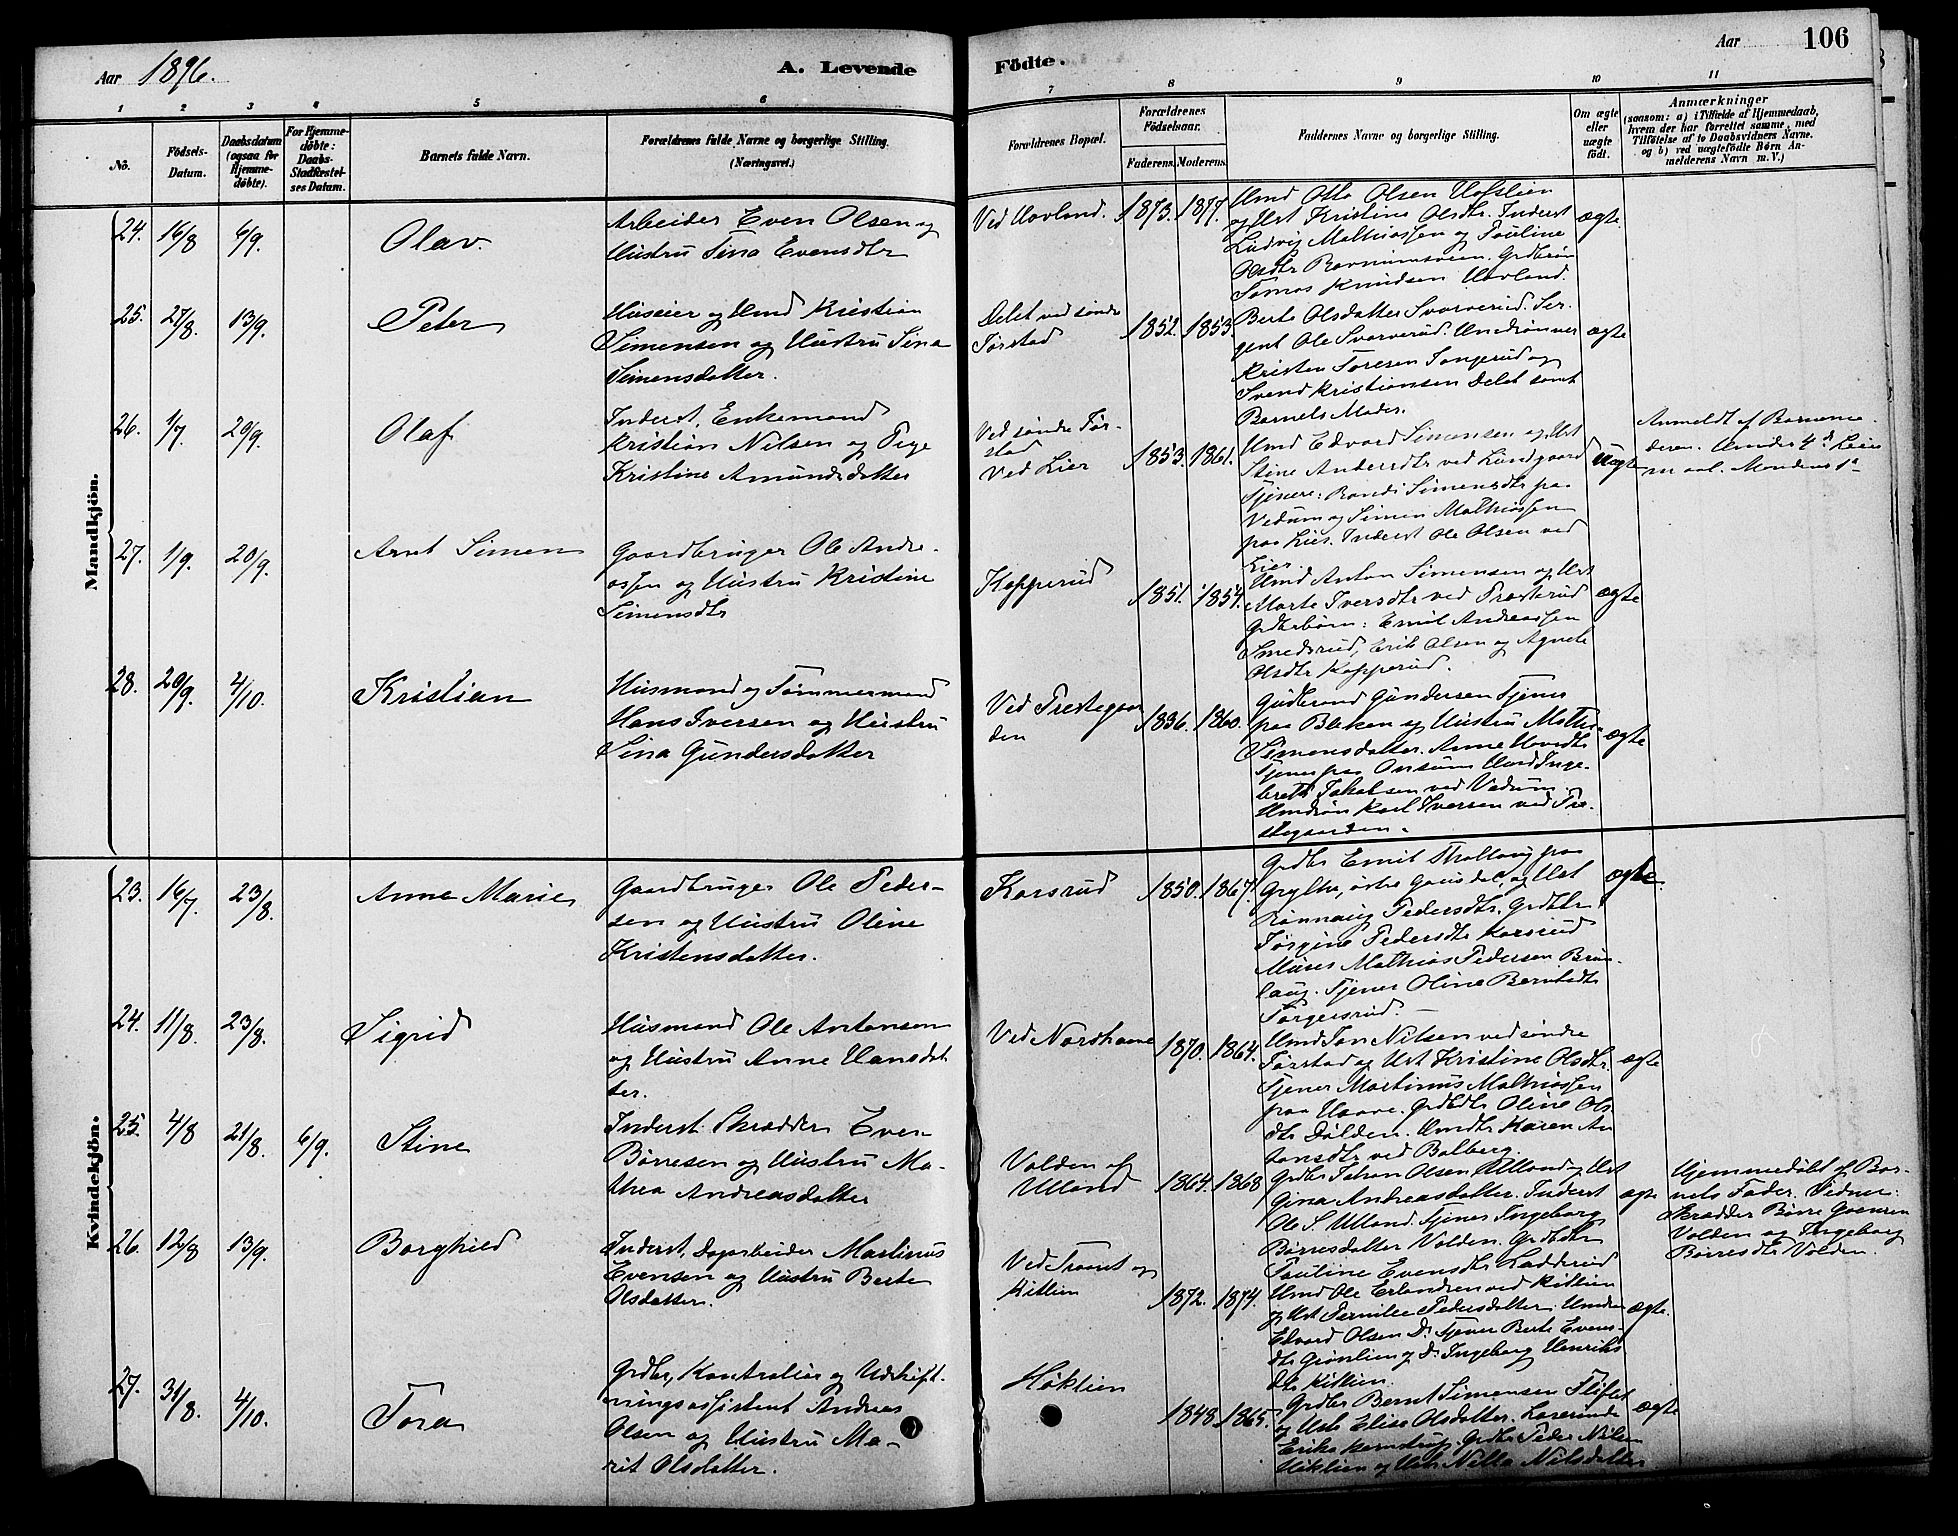 Aar 1896.
A. Levende
Födte.
Aar
106
1 2 3 4 5 6 7 8 9 10 11
No.
Födsels-
Datum.
Daabsdatum
(ogsaa for
Hjemme-
døbte).
For Hjemme-
døbte:
Daabs-
Stadfæstel-
ses Datum.
Barnets fulde Navn.
Forældrenes fulde Navne og borgerlige Stilling.
(Næringsvei.)
Forældrenes Bopæl.
Forældrenes
Födselsaar.
Faderens. Moderens.
Faddernes Navne og borgerlige Stilling.
Om ægte
eller
uægte
født.
Anmærkninger
(saasom: a) i Tilfælde af Hjemmedaab,
hvem der har forrettet samme, med
Tilføielse af to Daabsvidners Navne.
og b) ved uægtefødte Børn An-
melderens Navn m. V.)
Mandkjön.
24. 16/8 6/9. Olav.
Arbeider Even Olsen og
Hustru Sina Evensdtr
Ved Hovland. 1873. 1877.
Umd Otto Olsen Hofslien
og Ust Kristine Olsdtr. Inderst
Ludvig Mathiassen og Pauline
Olsdtr Grdbrsøn
Tomas Knudsen Hovland.
ægte
25. 27/8. 13/9. Peter
Huseier og Umd Kristian
Simensen og Hustru Sina
Simensdatter.
Delet ved søndre
Tørstad
1852. 1853.
Berte Olsdatter Svarverud. Ser-
gent Ole Svarverud.
Kristen Toresen og
Svend Kristiansen Delet samt
Barnets Moder.
ægte
26. 1/7. 20/9. Olaf
Inderst, Enkemand
Kristian Nilsen og Pige
Kristine Amundsdatter
Ved søndre Tør-
stad
Ved Lier
1853. 1861.
Umd Edvard Simensen og Ust
Stine Andersdtr ved Lundgaard
Tjenere: Randi Simensdtr paa
Vedum og Simen Mathiassen
paa Lier. Inderst Ole Olsen ved
Lier.
uægte
Anmeldt af Barnemo-
deren.
27. 1/9. 20/9. Arnt Simen
Gaardbruger Ole Andre-
assen og Hustru Kristine
Simensdtr
Kopperud 1851. 1854.
Umd Anton Simensen og Ust
Marte Iversdtr ved Præsterud
Grdbrbørn: Emil Andreassen
Smedsrud, Erik Olsen og Agnete
Olsdtr Kopperud.
ægte
28. 20/9. 4/10. Kristian
Husmand og Tømmermand
Hans Iversen og Hustru
Sina Gundersdatter
Ved Prestegaar
den
1836. 1860.
Gudbrand Gundersen Tjener
paa Bleken og Hustru Mathe
Simensdatter. Anne
Tjener paa Onsum Umd Inge-
bret Jakobsen ved Vedum.
Umdsøn Karl Iversen ved Pre-
stegaarden.
ægte
Kvindekjön.
23. 16/7. 23/8. Anne Marie
Gaardbruger Ole Peder-
sen og Hustru Oline
Kristensdatter.
Korsrud 1850. 1867.
Grdbr Emil paa
østre Gausdal, og Ust
Rønnaug Pedersdtr. Grdbr
Jørgine Pedersdtr Korsrud
Murer Mathias Pedersen Brun-
laug. Tjener Oline Berntsdtr
Torgersrud.
ægte
24. 11/8. 23/8. Sigrid
Husmand Ole Antonsen
og Hustru Anne Hansdat
ter.
Ved Nordhove 1870. 1864.
Umd Jon Nilsen ved søndre
Tørstad og Ust Kristine Olsdtr.
Tjener Martinus Mathiassen
paa Grdbdtr Oline Ols
dtr Dølden. Umdtr Karen An
tonsdtr ved Bolberg.
ægte
25. 4/8 21/8. 6/9. Stine
Inderst Skrædder Even
Børresen og Hustru Ma-
thea Andreasdatter
Volden af
Ulland
1864. 1868
Grdbr Johan Olsen Ulland og Ust
Gina Andreasdatter. Inderst
Ole S. Ulland. Tjener Ingeborg
Børresdatter Volden. Grdbdtr
Pauline Evensdtr Ladderud
ægte
Hjemmedøbt af Bar-
nets Fader. Vidner:
Skrædder Børre
Volden og Ingeborg
Børresdtr Volden.
26. 12/8 13/9. Borghild
Inderst, Dagarbeider Martinus
Evensen og Hustru Berte
Olsdatter.
Ved og
Kitlien
1872. 1874.
Umd Ole Erlandsen ved Kitlien
og Ust Pernille Pedersdatter.
Edvard Olsen Do Tjener Berte Evens-
dtr Grønlien og Do Ingeborg Henriks
dtr Kitlien.
ægte.
27. 31/8. 4/10. Tora
Grdbr, Kontrollør og Udskift-
ningsassistent Andreas
Olsen og Hustru Ma-
rit Olsdatter.
Høklien
1848. 1865.
Grdbr Bernt Simensen
og Ust Elise Olsdatter. Lærerinde
Grdbr Peder Nilsen
Høklien og Nilsdatter
ægte